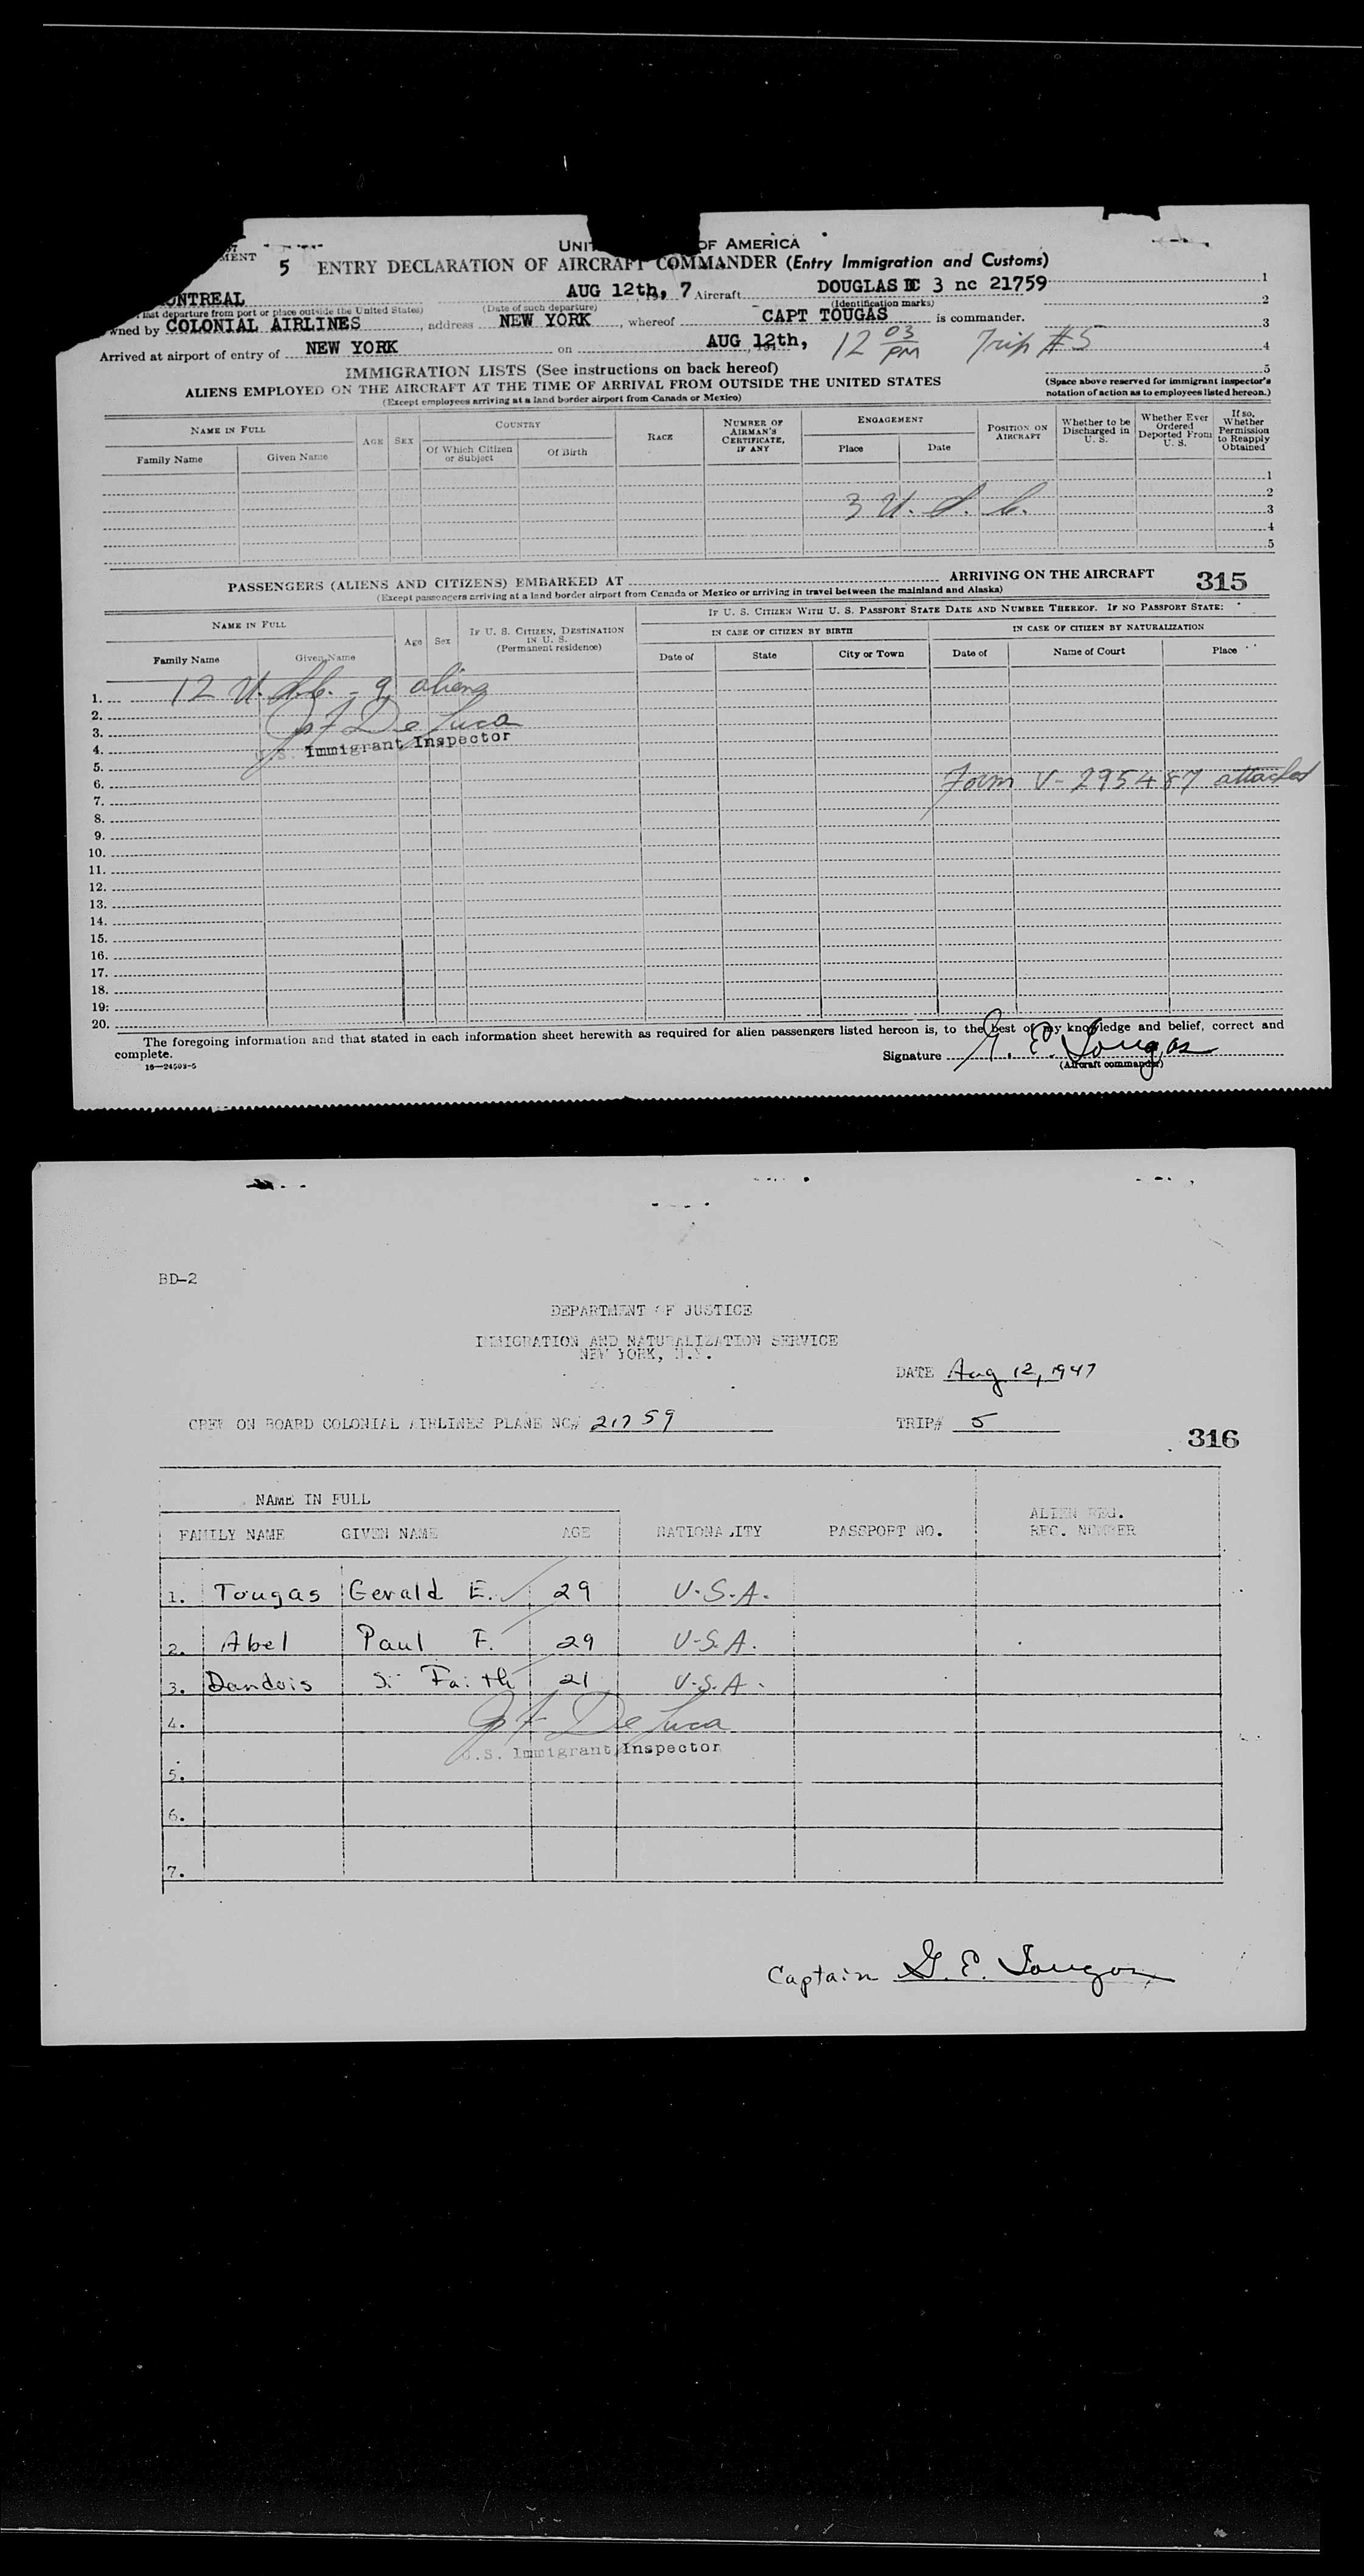 UNI OF AMERICA
MENT 5 ENTRY DECLARATION OF AIRCRAFT COMMANDER (Entry Immigration and Customs)
1
ONTREAL AUG 12th, 7 Aircraft DOUGLAS DC 3 nc 21759
last departure from port or place outside the United States) (Date of such departure) (Identification marks)
2
wned by COLONIAL AIRLINES, address NEW YORK, whereof CAPT TOUGAS is commander.
3
Arrived at airport of entry of NEW YORK on AUG 12th, 12 03 PM Trip #5
4
5
IMMIGRATION LISTS (See instructions on back hereof)
ALIENS EMPLOYED ON THE AIRCRAFT AT THE TIME OF ARRIVAL FROM OUTSIDE THE UNITED STATES
(Except employees arriving at a land border airport from Canada or Mexico)
(Space above reserved for immigrant inspector's
notation of action as to employees listed hereon.)
NAME IN FULL
Family Name Given Name
AGE SEX
COUNTRY
Of Which Citizen or Subject Of Birth
RACE
NUMBER OF AIRMAN'S CERTIFICATE, IF ANY
ENGAGEMENT
Place Date
POSITION ON AIRCRAFT
Whether to be Discharged in U. S.
Whether Ever Ordered Deported From U. S.
If so, Whether Permission to Reapply Obtained
1
2
3 U. S. C.
3
4
5
PASSENGERS (ALIENS AND CITIZENS) EMBARKED AT ARRIVING ON THE AIRCRAFT 315
(Except passengers arriving at a land border airport from Canada or Mexico or arriving in travel between the mainland and Alaska)
NAME IN FULL
Family Name Given Name
Age Sex
IF U. S. CITIZEN, DESTINATION IN U. S.
(Permanent residence)
IF U. S. CITIZEN WITH U. S. PASSPORT STATE DATE AND NUMBER THEREOF. IF NO PASSPORT STATE:
IN CASE OF CITIZEN BY BIRTH IN CASE OF CITIZEN BY NATURALIZATION
Date of State City or Town Date of Name of Court Place
1. 12 U.S.C. - 9 aliens
2.
3. De Luca
4. U.S. Immigrant Inspector
5.
6. Form V-295487 attached
7.
8.
9.
10.
11.
12.
13.
14.
15.
16.
17.
18.
19.
20.
The foregoing information and that stated in each information sheet herewith as required for alien passengers listed hereon is, to the best of my knowledge and belief, correct and
complete.
Signature G. E. Tougas
(Aircraft commander)
16—24503-5
BD-2
DEPARTMENT OF JUSTICE
IMMIGRATION AND NATURALIZATION SERVICE
NEW YORK, N.Y.
DATE Aug 12, 1947
CREW ON BOARD COLONIAL AIRLINES PLANE NC# 21759 TRIP# 5
316
NAME IN FULL
FAMILY NAME GIVEN NAME AGE NATIONALITY PASSPORT NO. ALIEN REG. REC. NUMBER
1. Tougas Gerald E. 29 U.S.A.
2. Abel Paul F. 29 U.S.A.
3. Dandois S. Faith 21 U.S.A.
4. De Luca
U.S. Immigrant Inspector
5.
6.
7.
Captain G. E. Tougas